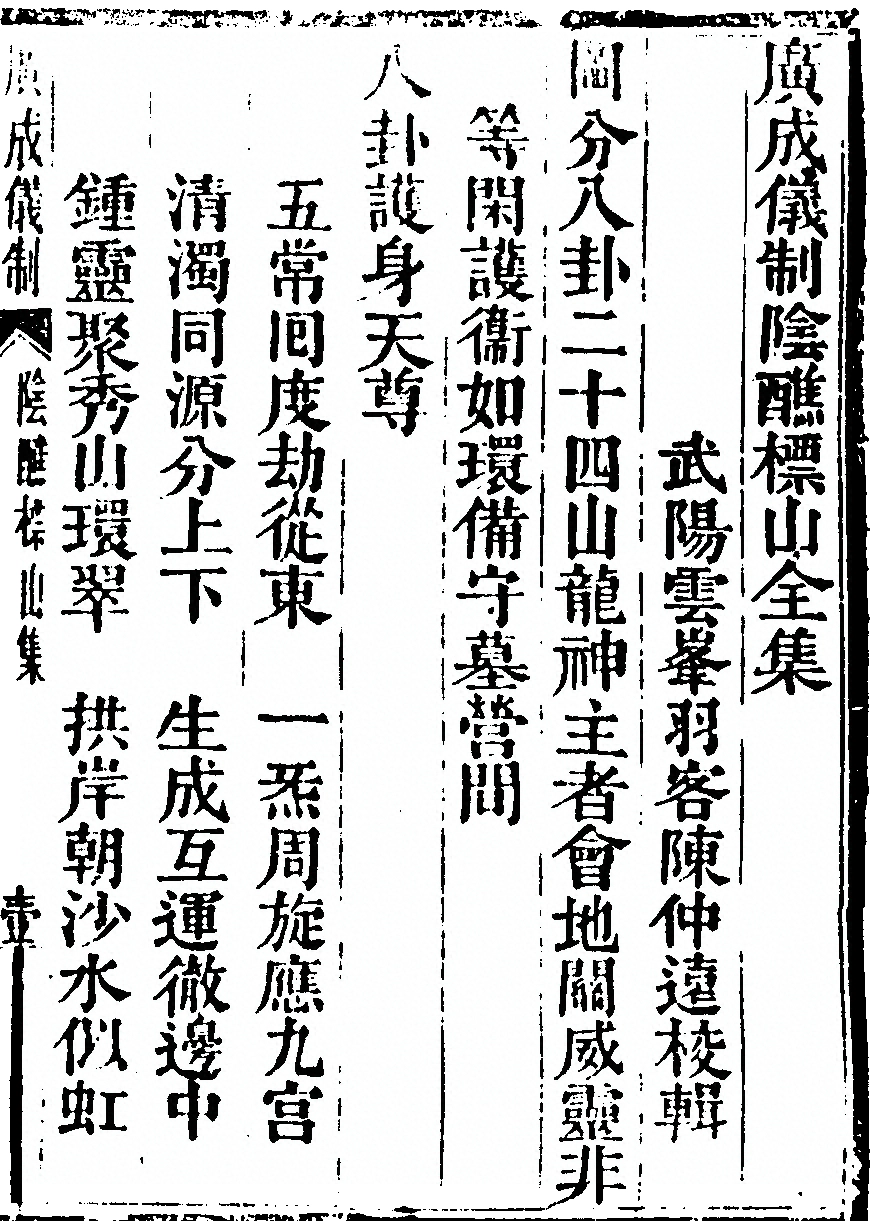 廣成儀制陰醮標山全集
武陽雲峯羽客陳仲遠校輯
岡分八卦二十四山龍神主者會地關威靈非
等閑護衞如環備守墓營間
八卦護身天尊
五常囘度劫從東 一炁周旋應九宫
清濁同源分上下 生成互運徹邊中
鍾靈聚秀山環翠 拱岸朝沙水似虹
廣成儀制 陰醮標山集 壹